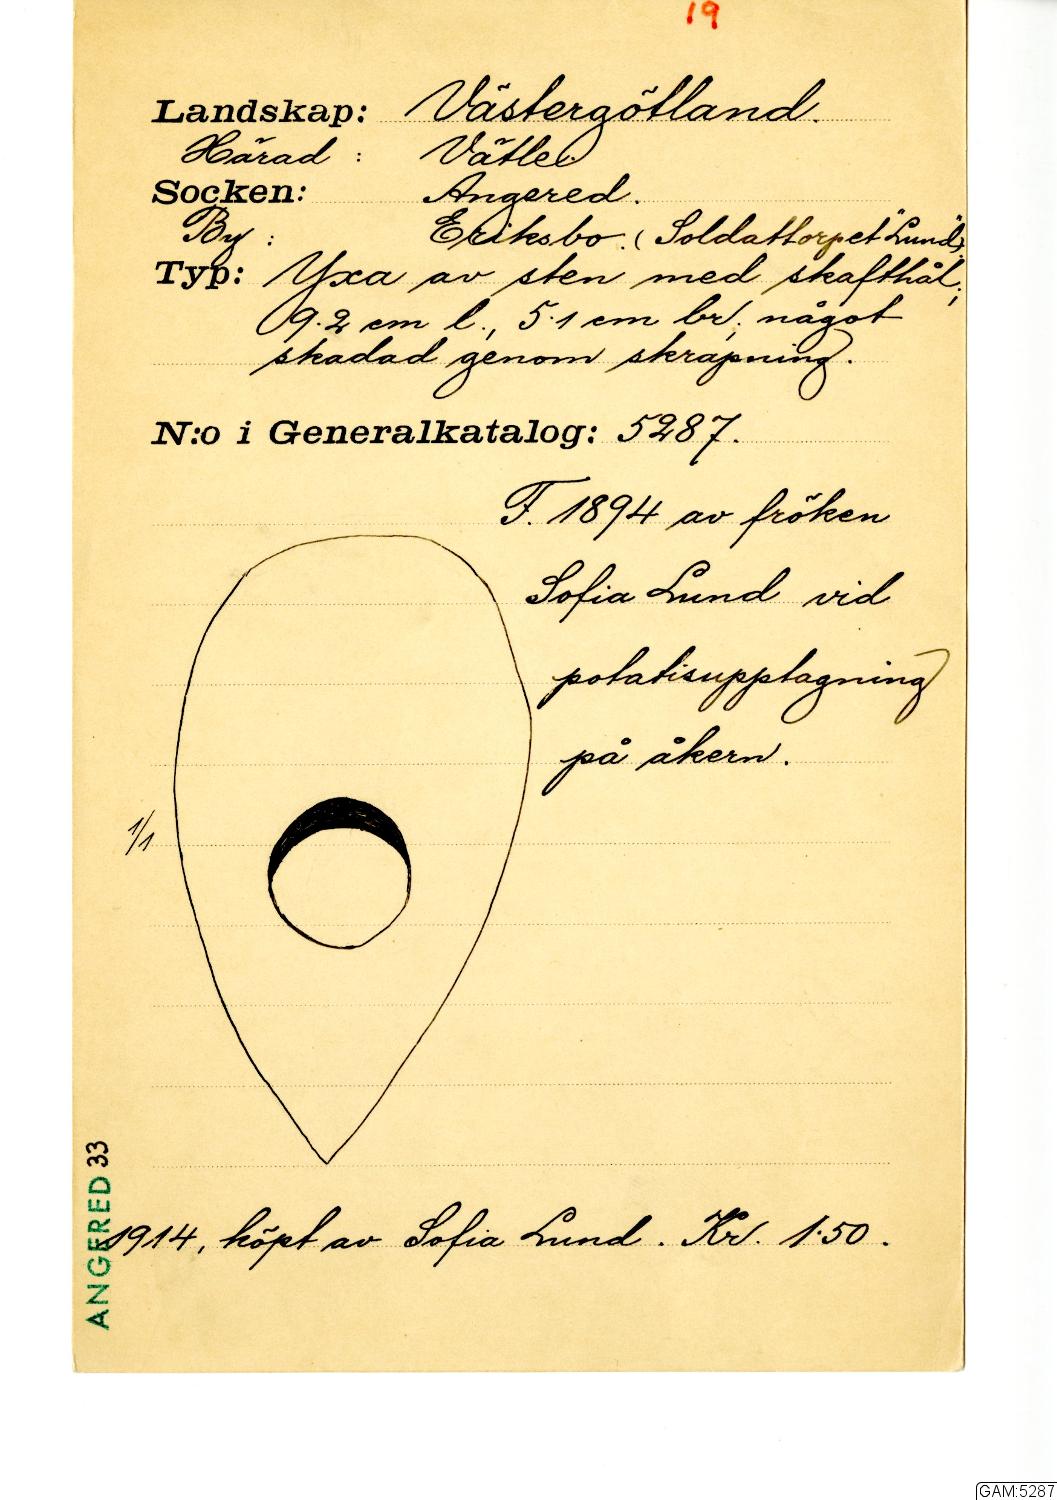 19
Landskap: Västergötland.
Härad : Vätle
Socken: Angered.
By : Eriksbo. (Soldattorpet "Lund").
Typ: Yxa av sten med skafthål;
9.2 cm l., 5.1 cm br.; något
skadad genom skrapning.
N:o i Generalkatalog: 5287.
F. 1894 av fröken
Sofia Lund vid
potatisupptagning
på åkern.
1/1
ANGERED 33
1914, köpt av Sofia Lund. Kr. 1.50.
GAM:5287